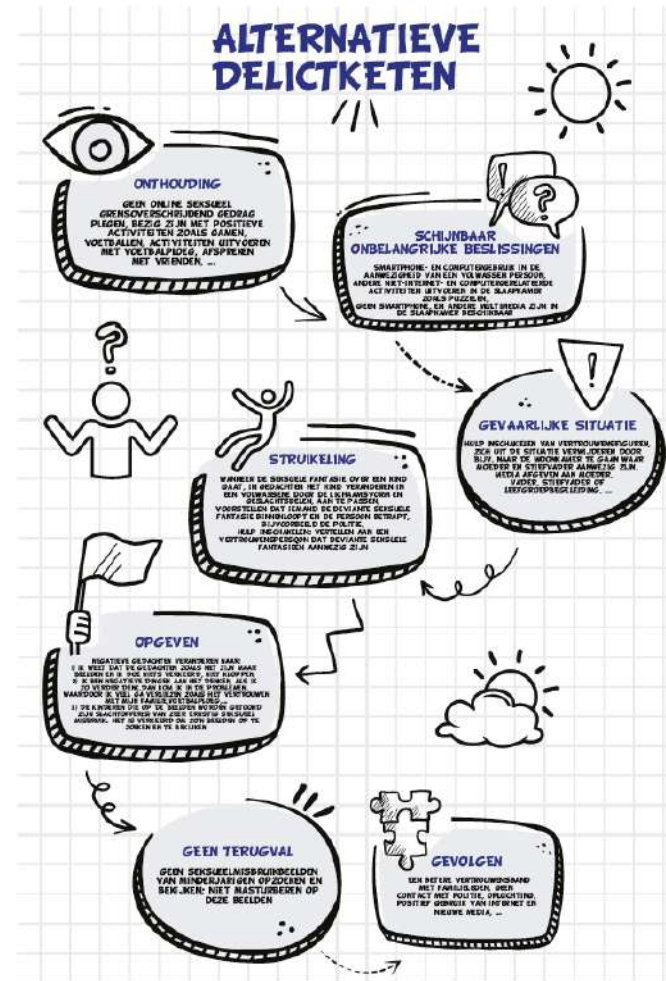 ALTERNATIEVE
DELICTKETEN
ONTHOUDING
GEEN ONLINE SEKSUEEL
GRENSOVERSCHRIJDEND GEDRAG
PLEGEN, BEZIG ZIJN MET POSITIEVE
ACTIVITEITEN ZOALS GAMEN,
VOETBALLEN, ACTIVITEITEN UITVOEREN
MET VOETBALPLOEG, AFSPREKEN
MET VRIENDEN, ...
SCHIJNBAAR
ONBELANGRIJKE BESLISSINGEN
SMARTPHONE- EN COMPUTERGEBRUIK IN DE
AANWEZIGHEID VAN EEN VOLWASSEN PERSOON,
ANDERE NIET-INTERNET- EN COMPUTERGERELATEERDE
ACTIVITEITEN UITVOEREN IN DE SLAAPKAMER
ZOALS PUZZELEN,
GEEN SMARTPHONE, EN ANDERE MULTIMEDIA ZIJN IN
DE SLAAPKAMER BESCHIKBAAR
GEVAARLIJKE SITUATIE
HULP INSCHAKELEN VAN VERTROUWENSFIGUREN,
ZICH UIT DE SITUATIE VERWIJDEREN DOOR
BIJV. NAAR DE WOONKAMER TE GAAN WAAR
MOEDER EN STIEFVADER AANWEZIG ZIJN.
MEDIA AFGEVEN AAN MOEDER,
VADER, STIEFVADER OF
LEEFGROEPBEGELEIDING, ...
STRUIKELING
WANNEER DE SEKSUELE FANTASIE OVER EEN KIND
GAAT, IN GEDACHTEN HET KIND VERANDEREN IN
EEN VOLWASSENE DOOR DE LICHAAMSVORM EN
GESLACHTSDELEN, AAN TE PASSEN,
VOORSTELLEN DAT IEMAND DE DEVIANTE SEKSUELE
FANTASIE BINNENLOOPT EN DE PERSOON BETRAPT,
BIJVOORBEELD DE POLITIE,
HULP INSCHAKELEN: VERTELLEN AAN EEN
VERTROUWENSPERSOON DAT DEVIANTE SEKSUELE
FANTASIEËN AANWEZIG ZIJN
OPGEVEN
NEGATIEVE GEDACHTEN VERANDEREN NAAR:
1) IK WEET DAT DE GEDACHTEN ZOALS HET ZIJN MAAR
BEELDEN EN IK DOE NIETS VERKEERD, NIET KLOPPEN
2) IK BEN NEGATIEVE DINGEN AAN HET DENKEN, ALS IK
ZO VERDER DENK, DAN KOM IK IN DE PROBLEMEN
WAARDOOR IK VEEL GA VERLIEZEN ZOALS HET VERTROUWEN
MET MIJN FAMILIE, VOETBALPLOEG, ...
3) DE KINDEREN DIE OP DE BEELDEN WORDEN GETOOND
ZIJN SLACHTOFFERS VAN ZEER ERNSTIG SEKSUEEL
MISBRUIK. HET IS VERKEERD OM ZO'N BEELDEN OP TE
ZOEKEN EN TE BEKIJKEN
GEEN TERUGVAL
GEEN SEKSUEELMISBRUIKBEELDEN
VAN MINDERJARIGEN OPZOEKEN EN
BEKIJKEN; NIET MASTURBEREN OP
DEZE BEELDEN
GEVOLGEN
EEN BETERE VERTROUWENSBAND
MET FAMILIELEDEN, GEEN
CONTACT MET POLITIE, OPLUCHTING,
POSITIEF GEBRUIK VAN INTERNET EN
NIEUWE MEDIA, ...